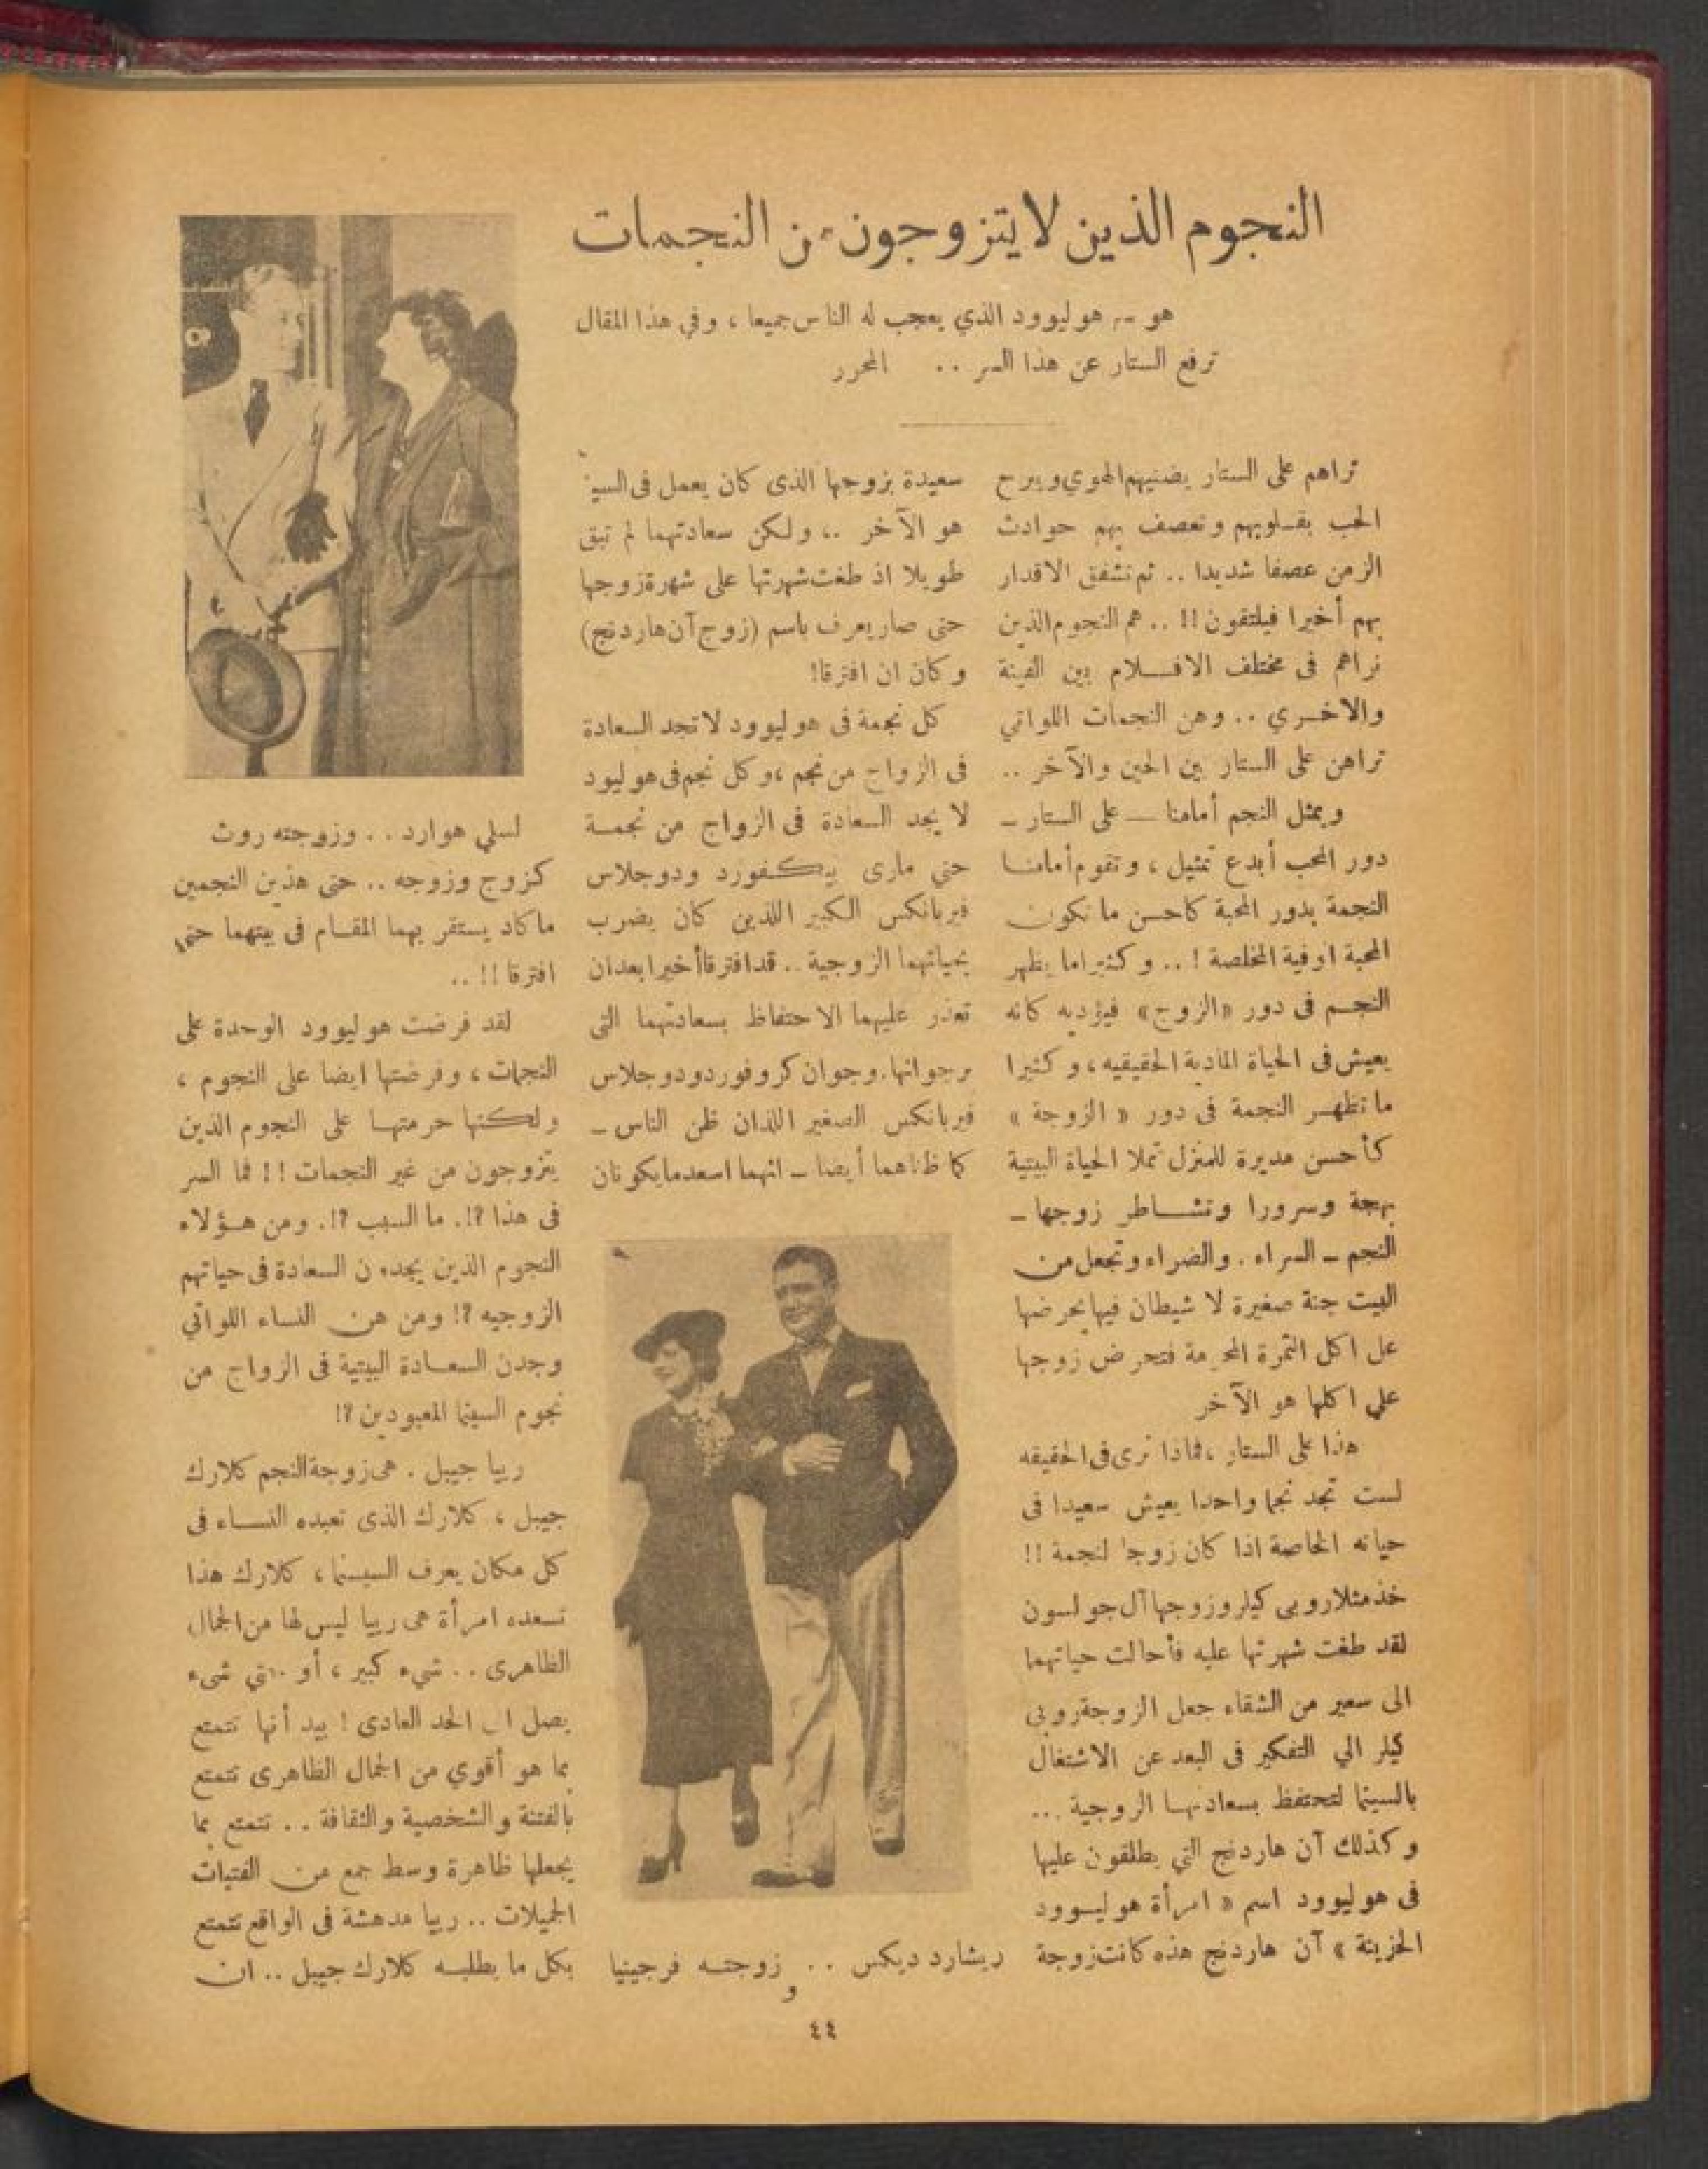 النجوم الذين لا يتزوجون من النجمات
هو سر هوليوود الذي يعجب له الناس جميعا ، وفي هذا المقال
ترفع الستار عن هذا السر .. المحرر
تراهم على الستار يضنيهم الهوي ويبرح
الحب بقلوبهم وتعصف بهم حوادث
الزمن عصفا شديدا .. ثم تشفق الاقدار
بهم أخيرا فيلتقون !! .. هم النجوم الذين
نراهم فى مختلف الافلام بين الفينة
والاخري .. وهن النجمات اللواتي
تراهن على الستار بين الحين والآخر ..
ويمثل النجم أمامنا — على الستار —
دور المحب أبدع تمثيل ، وتقوم أمامنا
النجمة بدور المحبة كاحسن ما تكون
المحبة الوفية المخلصة ! .. وكثيراما يظهر
النجم فى دور «الزوج» فيؤديه كانه
يعيش فى الحياة المادية الحقيقيه ، وكثيرا
ما تظهر النجمة فى دور « الزوجة »
كأحسن مديرة للمنزل تملا الحياة البيتية
بهجة وسرورا وتشاطر زوجها —
النجم — السراء . والضراء وتجعل من
البيت جنة صغيرة لا شيطان فيها يحرضها
عل اكل الثمرة المحرمة فتحرض زوجها
علي اكلها هو الآخر
هذا على الستار ، فماذا نرى فى الحقيقه
لست تجد نجما واحدا يعيش سعيدا فى
حياته الخاصة اذا كان زوجا لنجمة !!
خذ مثلا روبى كيلر وزوجها آل جولسون
لقد طغت شهرتها عليه فأحالت حياتهما
الى سعير من الشقاء جعل الزوجة روبى
كيلر الي التفكير فى البعد عن الاشتغال
بالسينما لتحتفظ بسعادتها الزوجية ...
وكذلك آن هاردنج التي يطلقون عليها
فى هوليوود اسم « امرأة هوليوود
الحزينة » آن هاردنج هذه كانت زوجة
سعيدة بزوجها الذى كان يعمل فى السي
هو الآخر .. ولكن سعادتهما لم تبق
طويلا اذ طغت شهرتها على شهرة زوجها
حتى صار يعرف باسم (زوج آن هاردنج)
وكان ان افترقا!
كل نجمة فى هوليوود لا تجد السعادة
فى الزواج من نجم ، وكل نجم فى هوليود
لا يجد السعادة فى الزواج من نجمة
حتي مارى بيكفورد ودوجلاس
فيربانكس الكبير اللذين كان يضرب
بحياتهما الزوجية .. قد افترقا أخيرا بعد ان
تعذر عليهما الاحتفاظ بسعادتهما التى
يرجوانها . وجوان كروفورد ودوجلاس
فيربانكس الصغير اللذان ظن الناس —
كما ظناهما أيضا — انهما اسعد ما يكونان
ريشارد ديكس .. و زوجته فرجينيا
لسلي هوارد .. وزوجته روث
كزوج وزوجه .. حتى هذين النجمين
ما كاد يستقر بهما المقام فى بيتهما حتى
افترقا !! ..
لقد فرضت هوليوود الوحدة على
النجمات ، وفرضتها ايضا على النجوم ،
ولكنها حرمتها على النجوم الذين
يتزوجون من غير النجمات !! فما السر
فى هذا ؟!. ما السبب ؟!. ومن هؤلاء
النجوم الذين يجدون السعادة فى حياتهم
الزوجيه ؟! ومن هن النساء اللواتي
وجدن السعادة البيتية فى الزواج من
نجوم السينما المعبودين ؟!
ريبا جيبل . هى زوجة النجم كلارك
جيبل ، كلارك الذى تعبده النساء فى
كل مكان يعرف السينما ، كلارك هذا
تسعده امرأة هى ريبا ليس لها من الجمال
الظاهرى .. شىء كبير ، أو حتي شىء
يصل الى الحد العادى ! بيد أنها تتمتع
بما هو أقوي من الجمال الظاهرى تتمتع
بالفتنة والشخصية والثقافة .. تتمتع بما
يجعلها ظاهرة وسط جمع من الفتيات
الجميلات .. ريبا مدهشة فى الواقع تتمتع
بكل ما يطلبه كلارك جيبل .. ان
٤٤